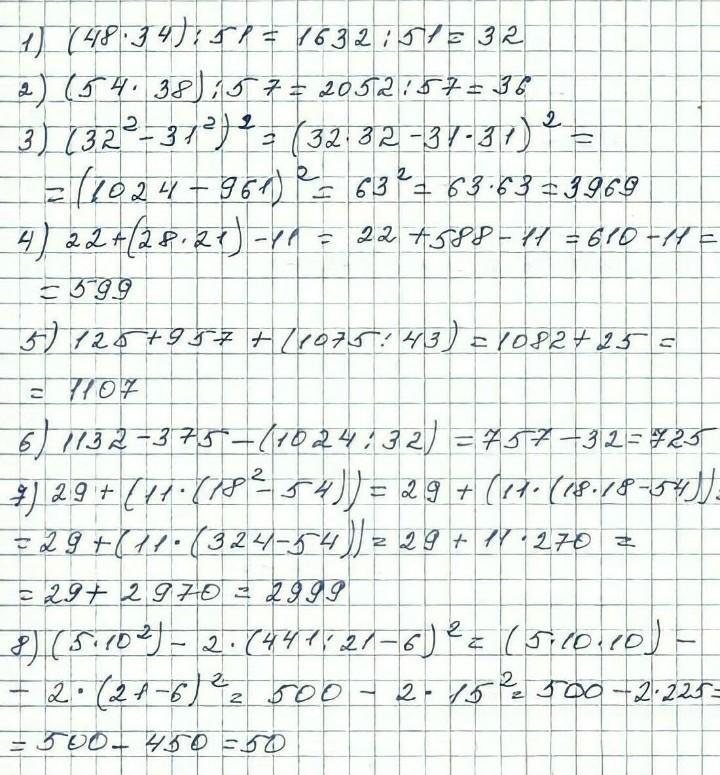 1) (48·34):51 = 1632:51 = 32
2) (54·38):57 = 2052:57 = 36
3) (32²-31²)² = (32·32-31·31)² =
= (1024-961)² = 63² = 63·63 = 3969
4) 22+(28·21)-11 = 22+588-11 = 610-11 =
= 599
5) 125+957+(1075:43) = 1082+25 =
= 1107
6) 1132-375-(1024:32) = 757-32 = 725
7) 29+(11·(18²-54)) = 29+(11·(18·18-54)) =
= 29+(11·(324-54)) = 29+11·270 =
= 29+2970 = 2999
8) (5·10²)-2·(441:21-6)² = (5·10·10)-
-2·(21-6)² = 500-2·15² = 500-2·225 =
= 500-450 = 50